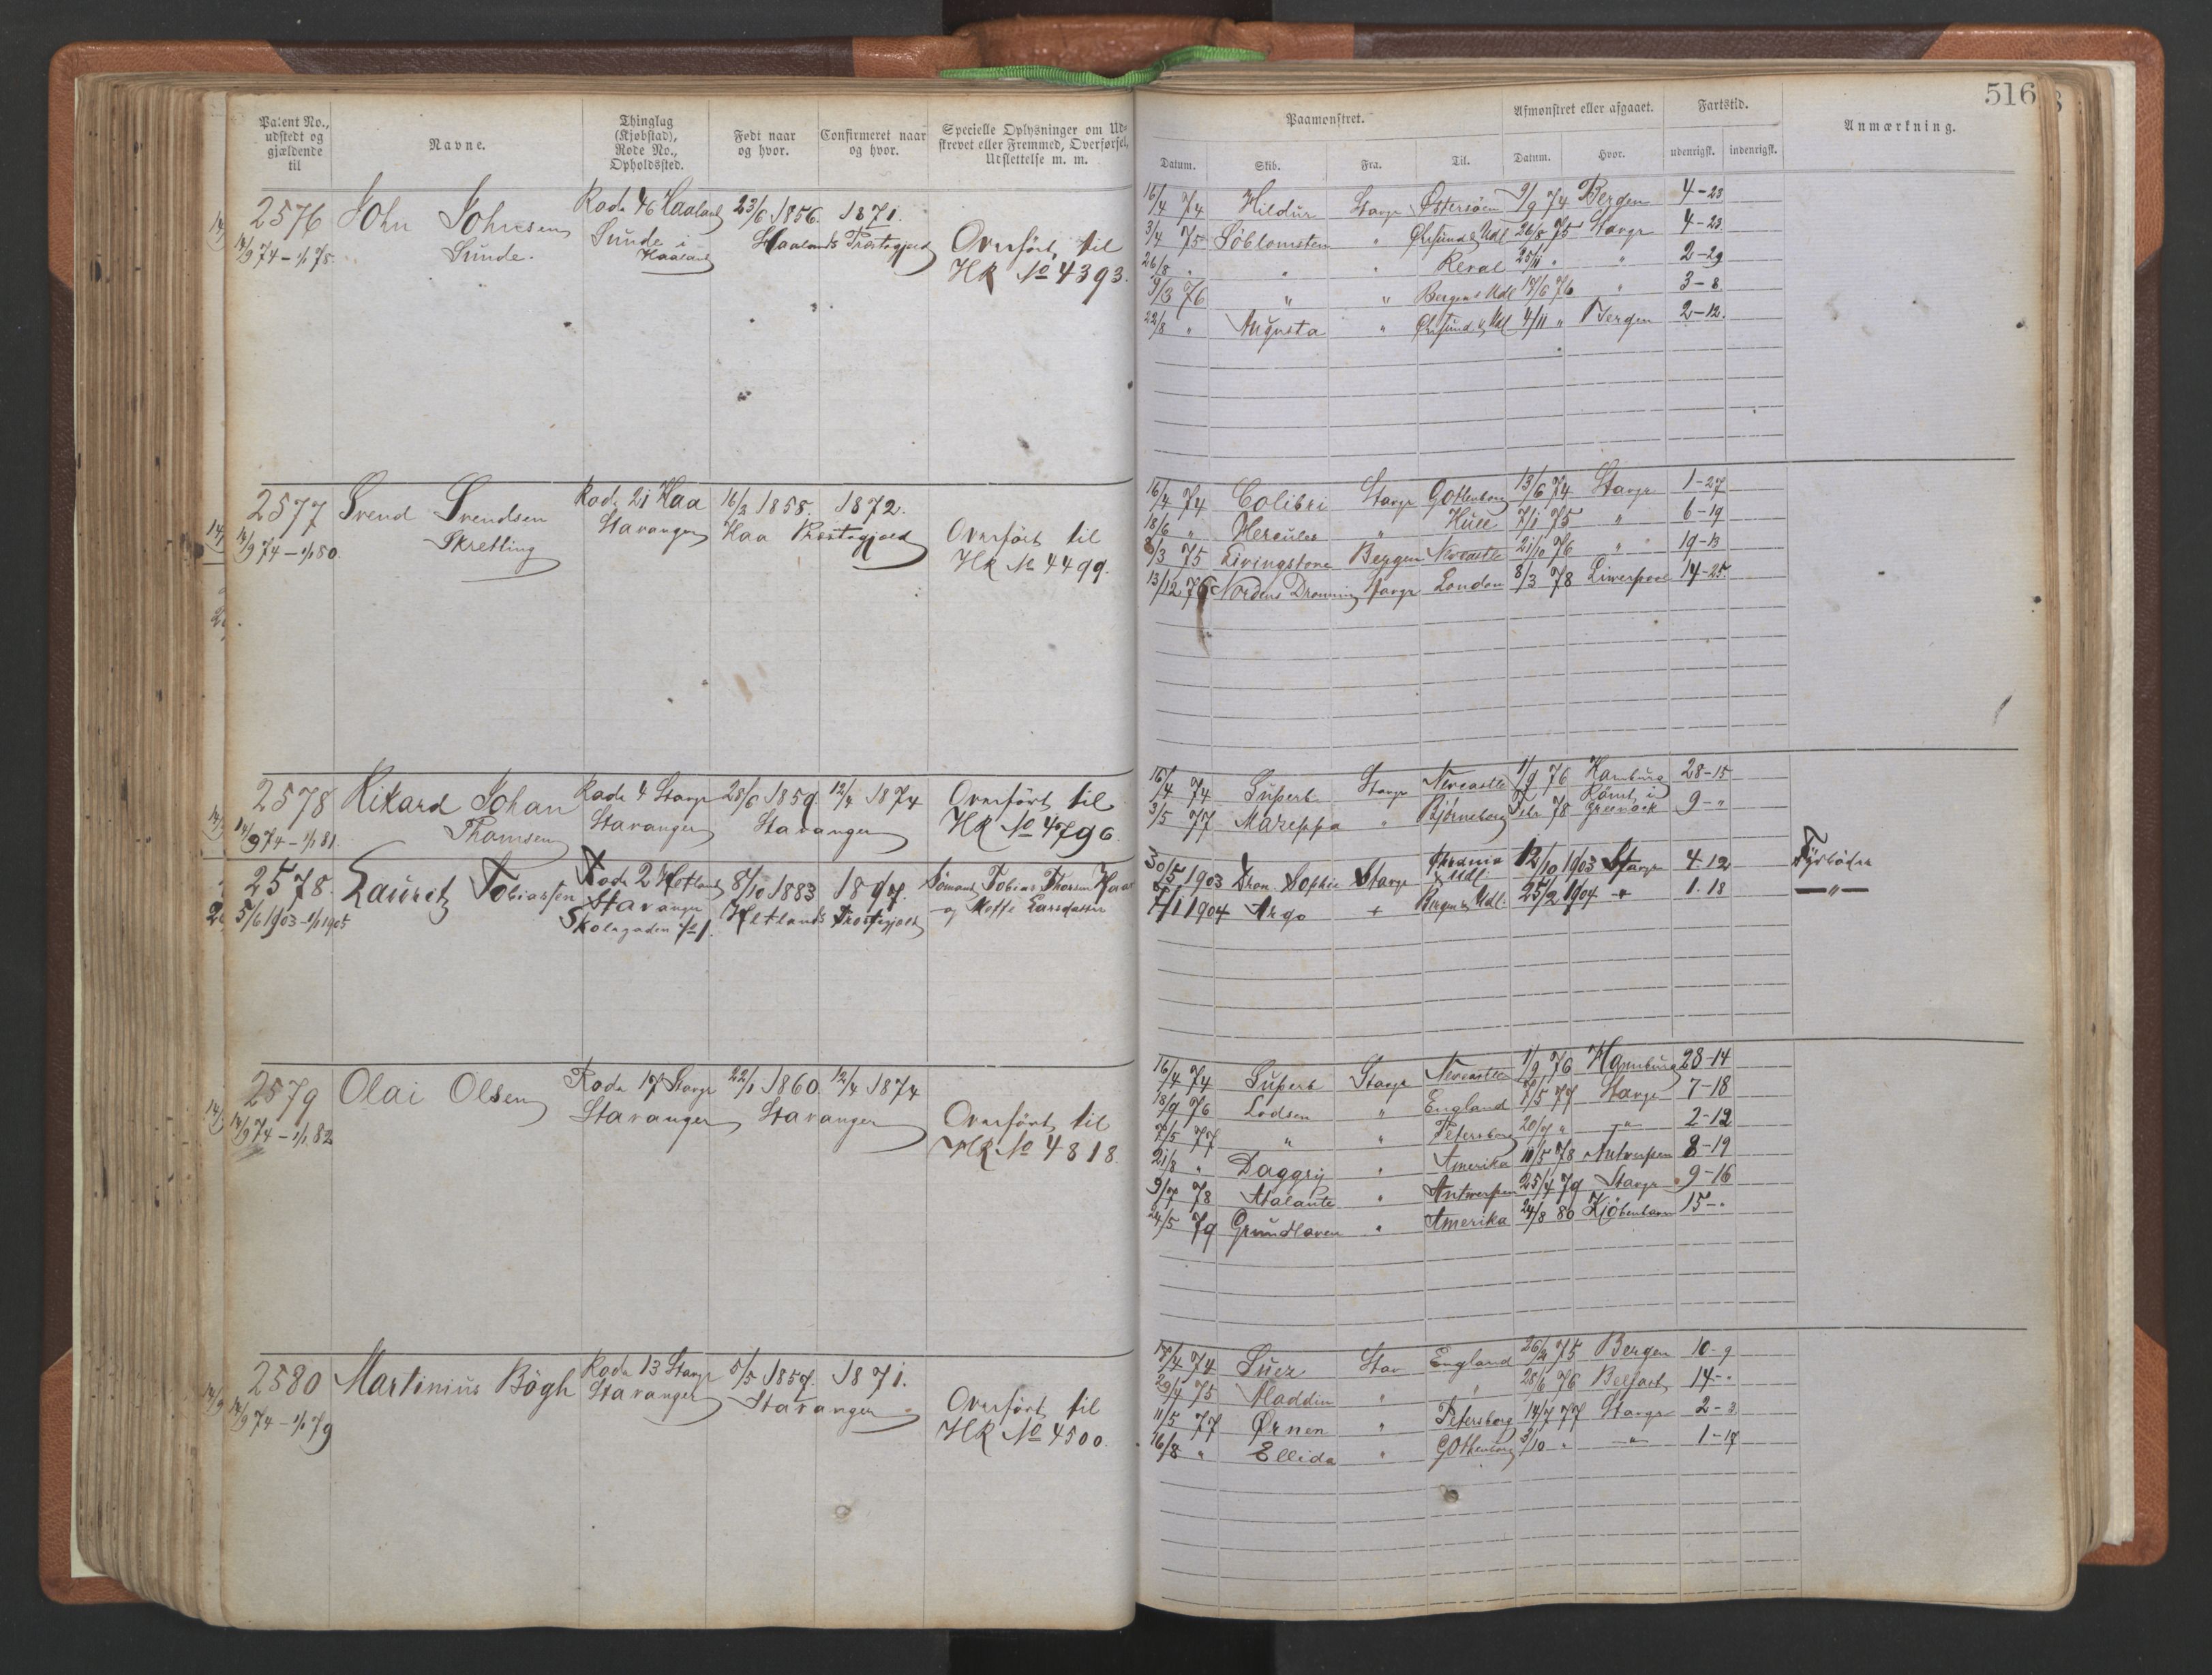 516
Patent No., udstedt og gjældende til
Navne.
Thinglag (Kjøbstad), Rode No., Opholdssted.
Født naar og hvor.
Confirmeret naar og hvor.
Specielle Oplysninger om Udskrevet eller Fremmed, Overførsel, Udslettelse m. m.
Paamønstret.
Afmønstret eller afgaaet.
Fartstid.
Anmærkning.
Datum. Skib. Fra. Til. Datum. Hvor. udenrigsk. indenrigsk.
2576 John Johnsen Rode 46 Haaland 23/6 1856. 1871.
14/9 74 – 1/1 78. Sunde. Sunde i Haaland Haalands Præstegjeld Overført til
HR No 4393.
16/4 74 Hildur Stavgr Østersøen 9/9 74 Bergen 4–23
3/4 75 Søblomsten " Øresund & Udl 26/8 75 Stavgr 4–23
26/8 " " " Reval 25/11 " " 2–29
9/3 76 " " Bergen & Udl 17/6 76 " 3–8
22/8 " Augusta " Øresund & Udl 4/11 " Bergen 2–12.
2577 Svend Svendsen Rode 21 Haa 16/3 1858. 1872.
14/9 74 – 1/1 80. Skretting Stavanger Haa Præstegjeld Overført til
HR No 4499.
16/4 74 Colibri Stavgr Gottenborg 13/6 74 Stavgr 1–27
18/6 " Hercules " Hull 7/1 75 " 6–19
8/3 75 Livingstone Bergen Newcastle 21/10 76 " 19–13
13/12 76 Nordens Dronning Stavgr London 8/3 78 Liverpool 14–25.
2578 Rikard Johan Rode 4 Stavgr 28/6 1859. 12/4 1874 Overført til
14/9 74 – 1/1 81. Thomsen Stavanger Stavanger HR No 4796
16/4 74 Superb Stavgr Newcastle 1/9 76 Hamburg 28–15
3/5 77 Mazeppa " Bjørneborg Febr 78 Rømt i Greenock 9–"
2578. Lauritz Tobiassen Rode 2 Hetland 8/10 1883 1897. Sømand Tobias Thorsen
5/6 1903 – 1/1 1905 Stavanger Hetlands Præstegjeld og Mette Larsdatter
Skolegaden No 1.
30/5 1903 Dron. Sophie Stavgr & Udl. 12/10 1903 Stavgr 4.12 Fyrbøder
7/1 1904 Argo + Bergen & Udl. 25/2 1904 –"– 1.18 –"–
2579 Olai Olsen Rode 17 Stavgr 22/1 1860. 12/4 1874
14/9 74 – 1/1 82 Stavanger Stavanger Overført til
HR No 4818.
16/4 74 Superb Stavgr Newcastle 1/9 76 Hamburg 28–14
13/9 76 Lodsen " England 1/5 77 Stavgr 7–18
7/5 77 " " Petersborg 20/7 " –"– 2–12
21/8 " Daggry " Amerika 10/5 78 Antwerpen 8–19
9/7 78 Atalante " Antwerpen 25/4 79 Stavgr 9–16
24/5 79 Grundloven " Amerika 24/8 80 Kjøbenhavn 15–"
2580 Martinius Bøgh Rode 13 Stavgr 5/5 1857. 1871.
14/9 74 – 1/1 79 Stavanger Stavanger Overført til
HR No 4500.
17/4 74 Suez Stav England 26/2 75 Bergen 10–9
29/4 75 Aladdin " " 28/6 76 Belfast 14–"
11/5 77 Ørnen " Petersborg 14/7 77 Stavgr 2–3
16/8 " Ellida " Gothenborg 3/10 " –"– 1–17